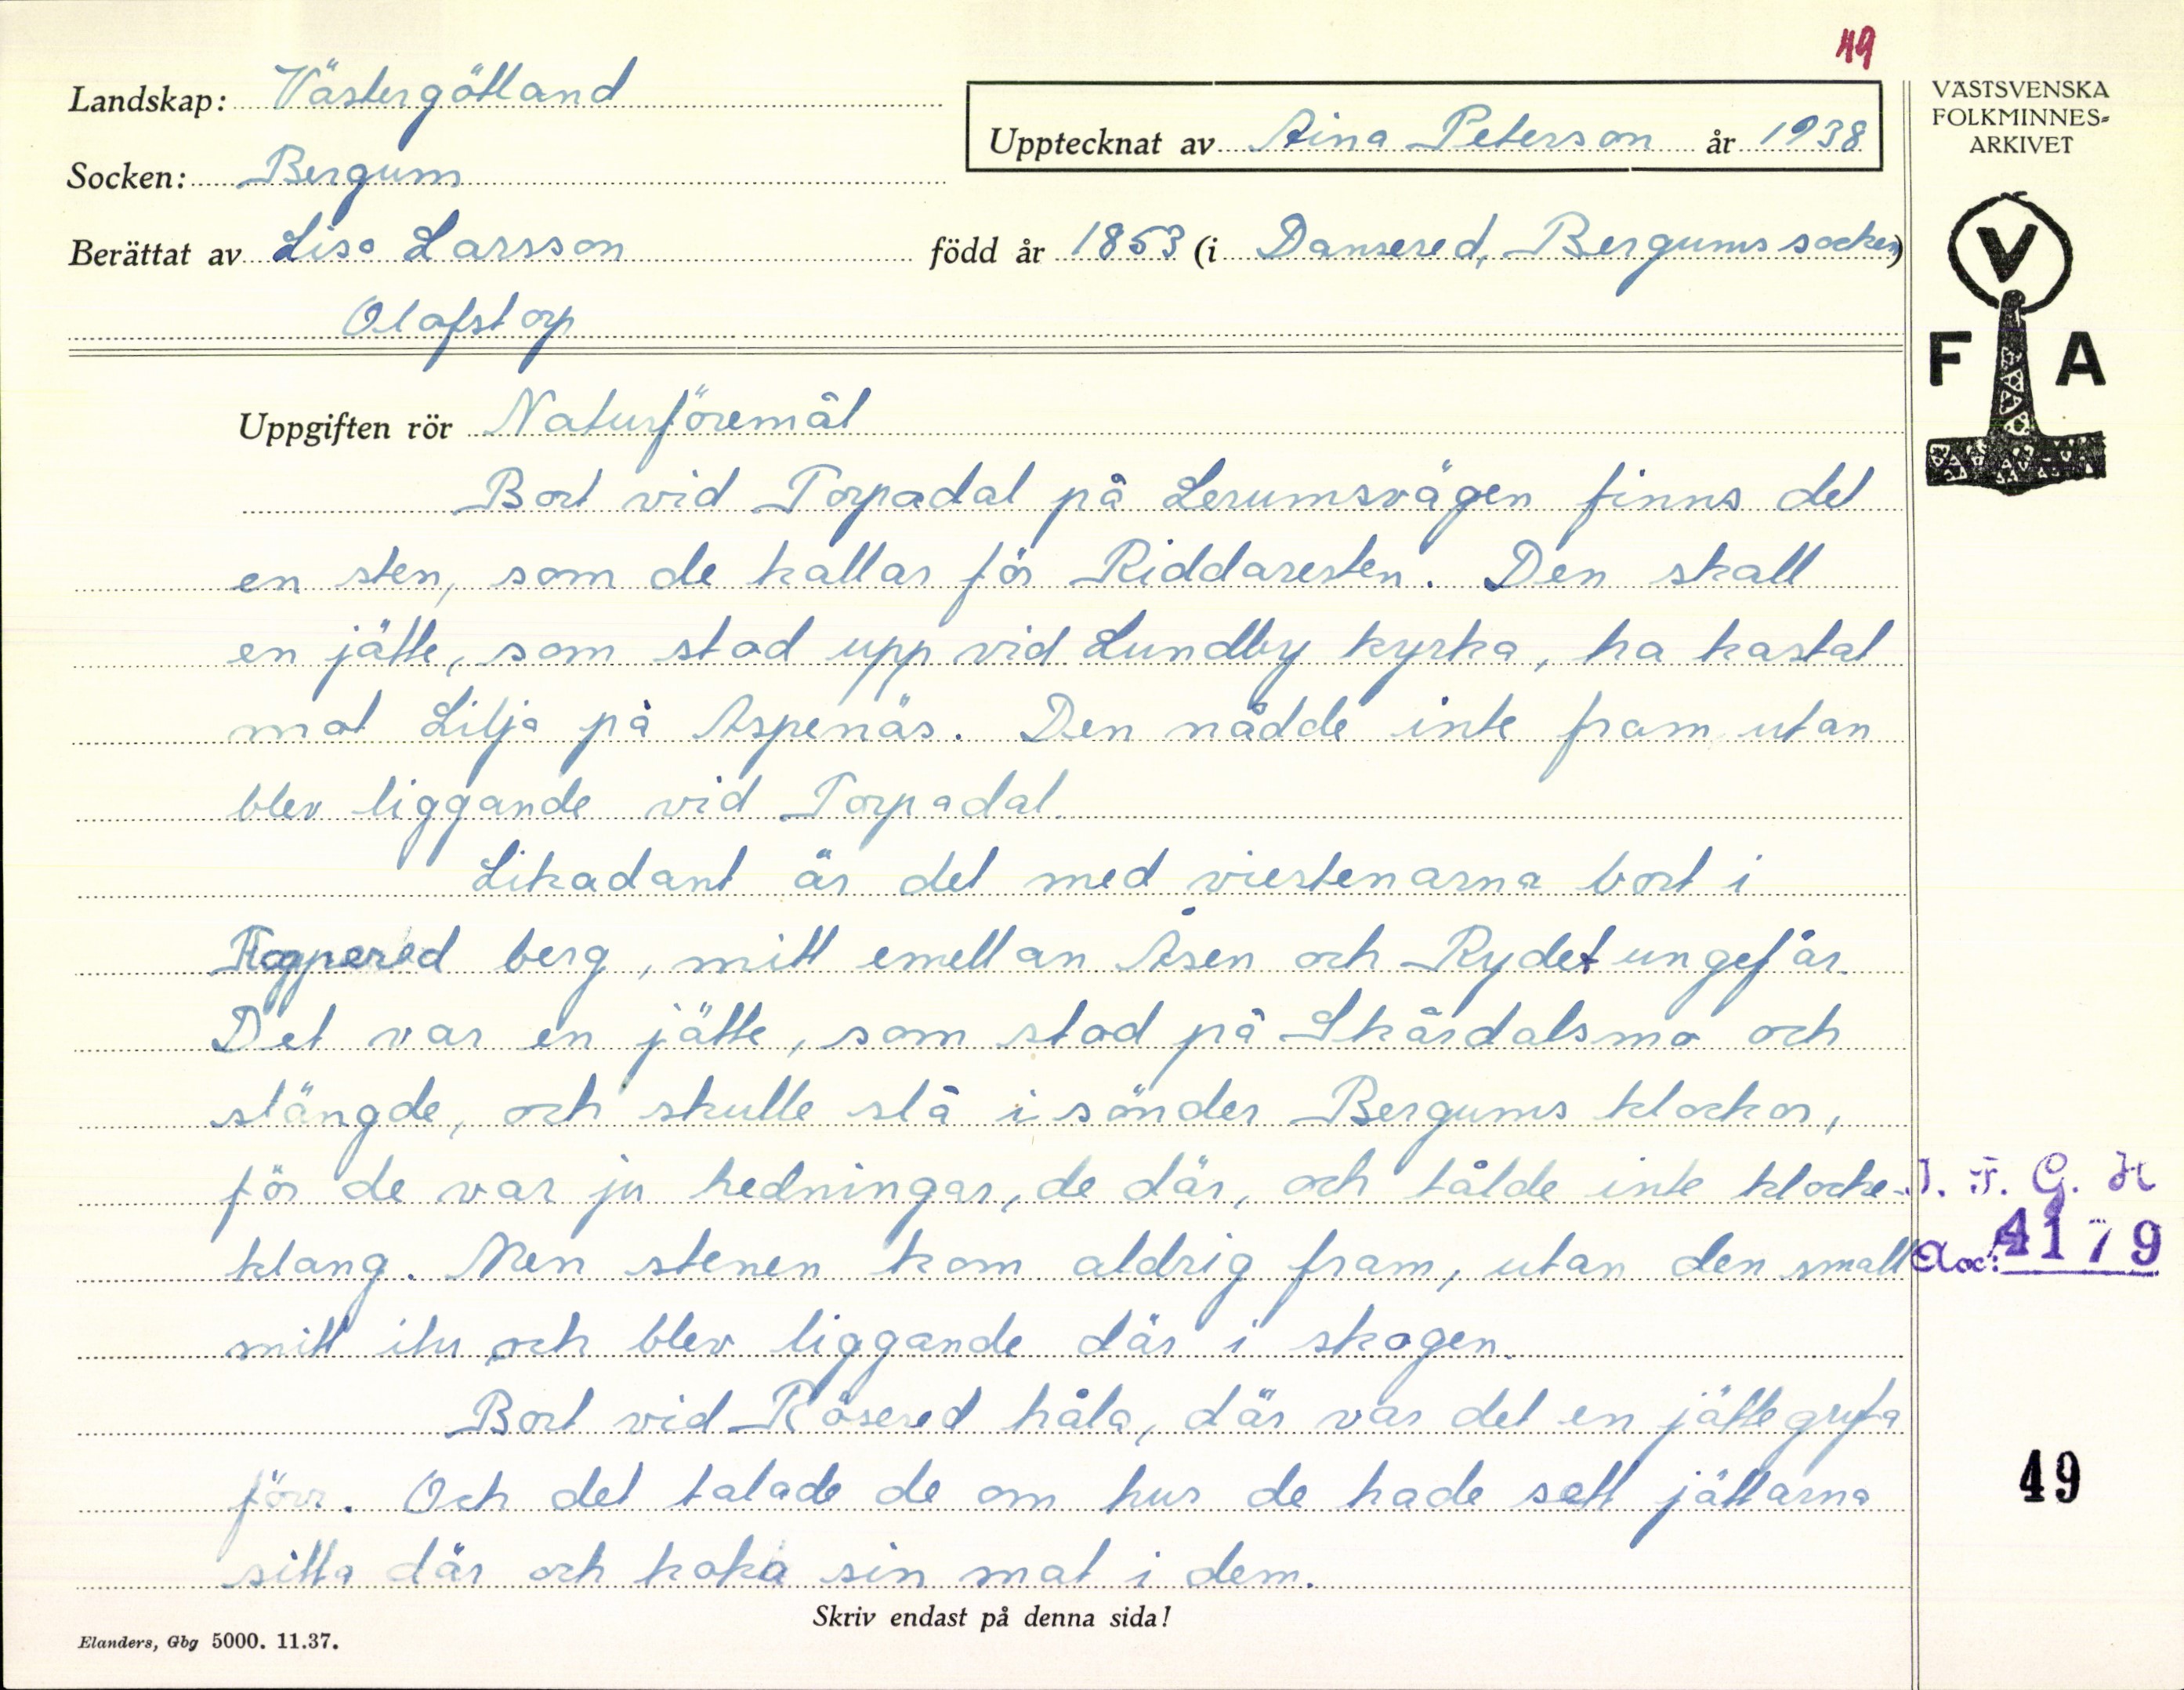 49
Landskap: Västergötland
Upptecknat av Aina Peterson år 1938
Socken: Bergum
Berättat av Lisa Larsson född år 1853 (i Dansered, Bergums socken)
Olofstorp
VÄSTSVENSKA
FOLKMINNES-
ARKIVET
V
F A
Uppgiften rör Naturföremål
Bort vid Torpadal på Lerumsvägen finns det
en sten, som de kallar för Riddaresten. Den skall
en jätte, som stod upp vid Lundby kyrka, ha kastat
mot Lilja på Aspenäs. Den nådde inte fram utan
blev liggande vid Torpadal.
Likadant är det med viestenarna bort i
berg, mitt emellan Åsen och Rydet ungefär.
Det var en jätte, som stod på Skårdalsmo och
slängde, och skulle slå i sönder Bergums klockor,
för de var ju hedningar, de där, och tålde inte klocke-
klang. Men stenen kom aldrig fram, utan den small
mitt itu och blev liggande där i skogen.
Bort vid Rösered håla, där var det en jättegryta
förr. Och det talade de om hur de hade sett jättarna
sitta där och koka sin mat i dem.
I. F. G. H
Acc: 4179
49
Skriv endast på denna sida!
Elanders, Gbg 5000. 11.37.